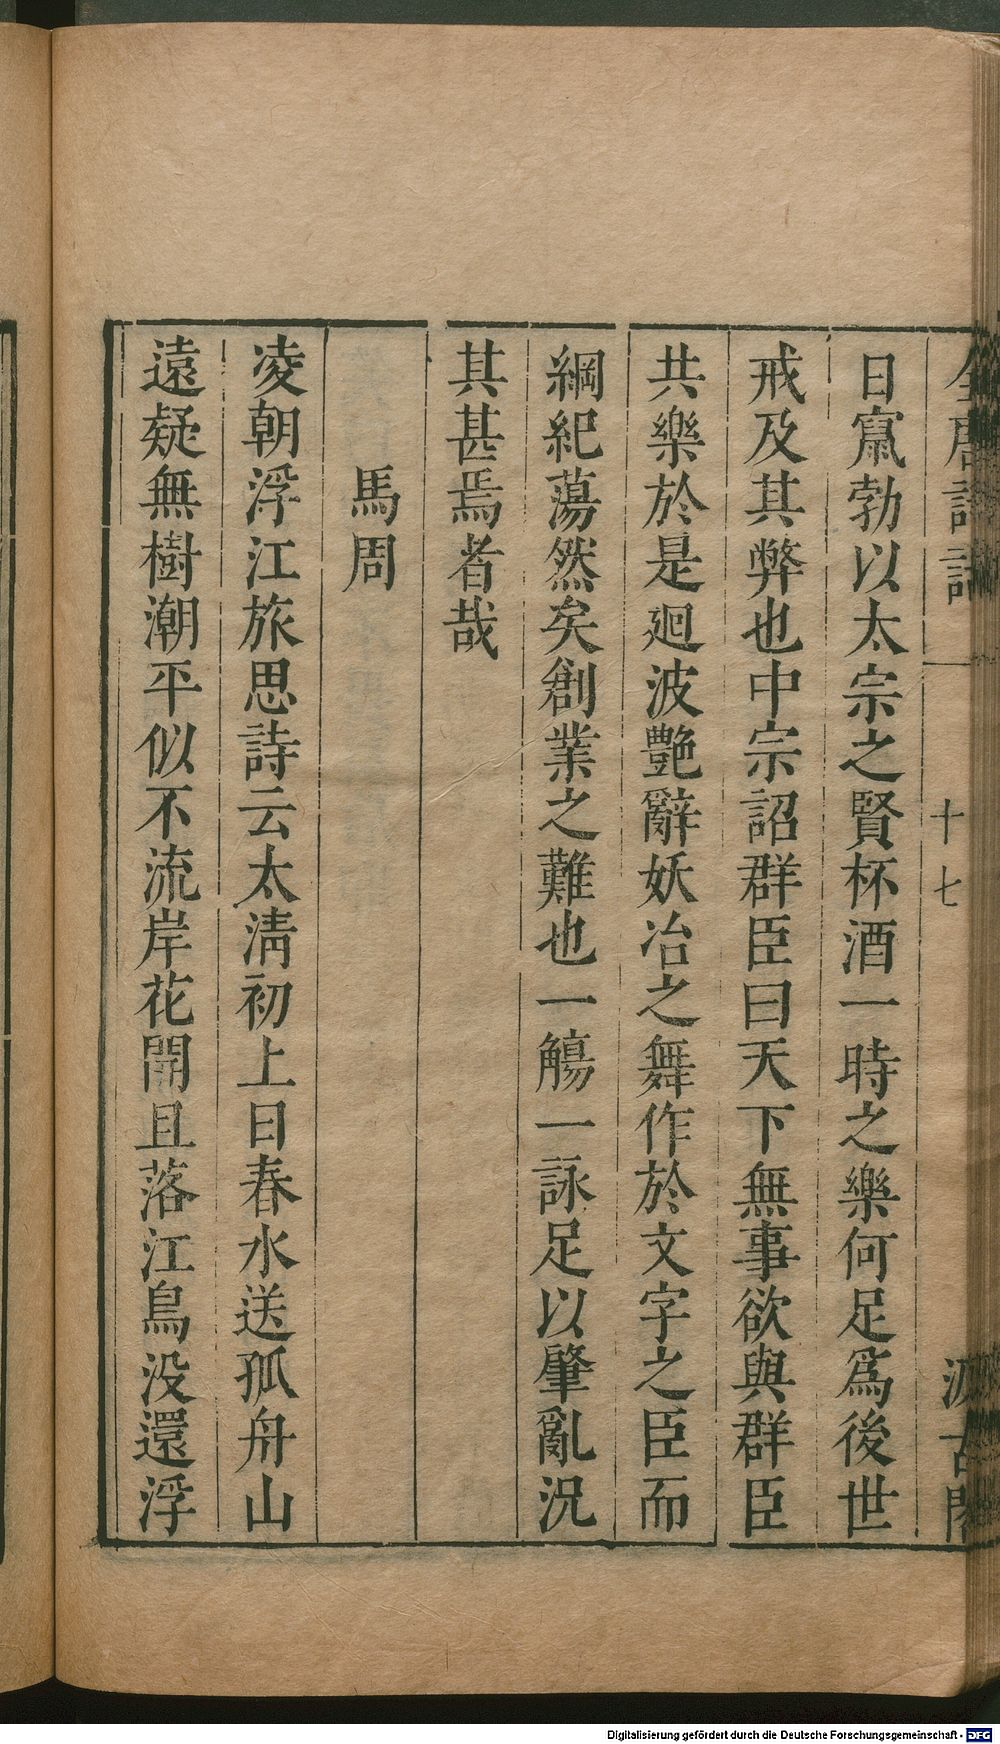 全唐詩話
十七
汲古閣
日窮勃以太宗之賢杯酒一時之樂何足爲後世
戒及其弊也中宗詔群臣曰天下無事欲與群臣
共樂於是廻波艷辭妖冶之舞作於文字之臣而
綱紀蕩然矣創業之難也一觴一詠足以肇亂況
其甚焉者哉
馬周
凌朝浮江旅思詩云太淸初上日春水送孤舟山
遠疑無樹潮平似不流岸花開且落江鳥没還浮
Digitalisierung gefördert durch die Deutsche Forschungsgemeinschaft - DFG